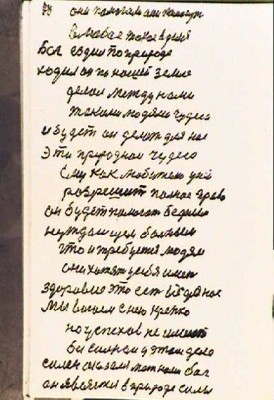 они помогали
в любое такое время
Бог ездил по природе
ходил он по нашей земле
делал между нами
такими людями чудеса
и будет он делот для нас
эти природная чудеса
Ему как любителю
разрешит полное право
он будет помогат
нуждающем больным
что и требуется людям
они хотят у себя имет
здоровие это ест
Мы боксом с нею крепко
но успехов не имеет
в этом дело
силен сказал мне нам бог
он является в природе силы